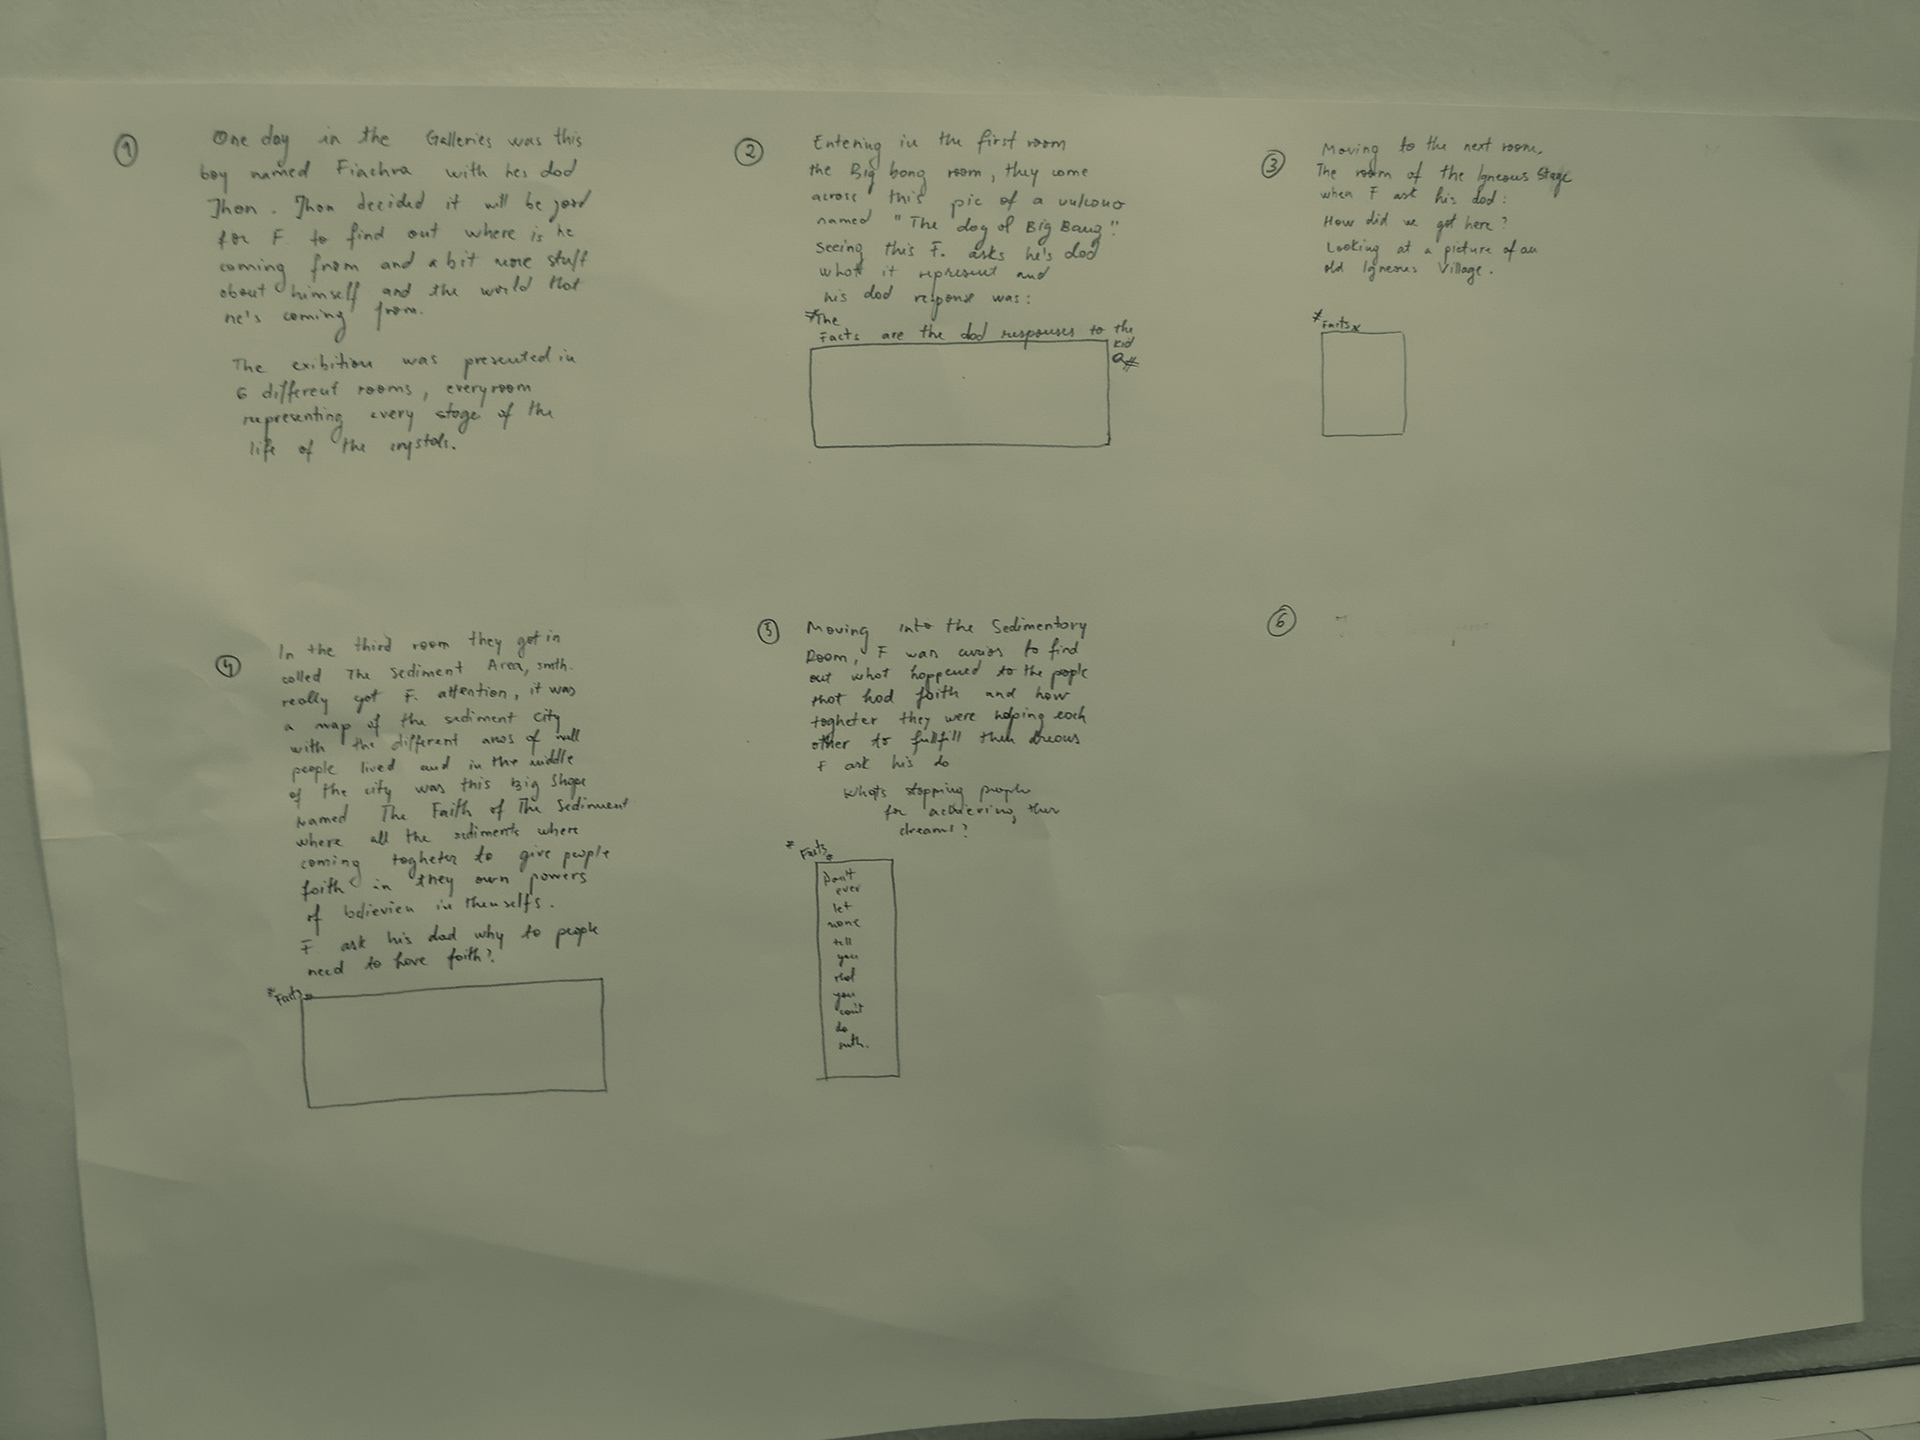 1
One day in the Galleries was this
boy named Fiachra with hes dad
Jhon. Jhon decided it will be good
for F. to find out where is he
coming from and a bit more stuff
about himself and the world that
he's coming from.
The exibition was presented in
6 different rooms, every room
representing every stage of the
life of the crystals.
2
Entering in the first room
the Big bang room, they come
across this pic of a vulcano
named "The day of Big Bang".
Seeing this F. asks he's dad
what it represent and
his dad response was:
*The
Facts are the dad responses to the
kid
Q*
3
Moving to the next room,
The room of the Igneous Stage
when F ask his dad:
How did we get here?
Looking at a picture of an
old Igneous Village.
*Facts*
4
In the third room they got in
called The Sediment Area, smth.
really got F. attention, it was
a map of the sediment city
with the different of
people lived and in the middle
of the city was this Big Shape
named The Faith of The Sediment
where all the sediments where
coming togheter to give people
faith in they own powers
of believien in themselfs.
F ask his dad why to people
need to have faith?
*Facts*
5
Moving into the Sedimentory
Room, F was curios to find
out what happened to the pople
that had faith and how
togheter they were helping each
other to fullfill their dreams
F ask his do
Whats stopping people
for achiering ther
dreams?
*Facts*
Don't
ever
let
none
tell
you
that
you
can't
do
smth.
6